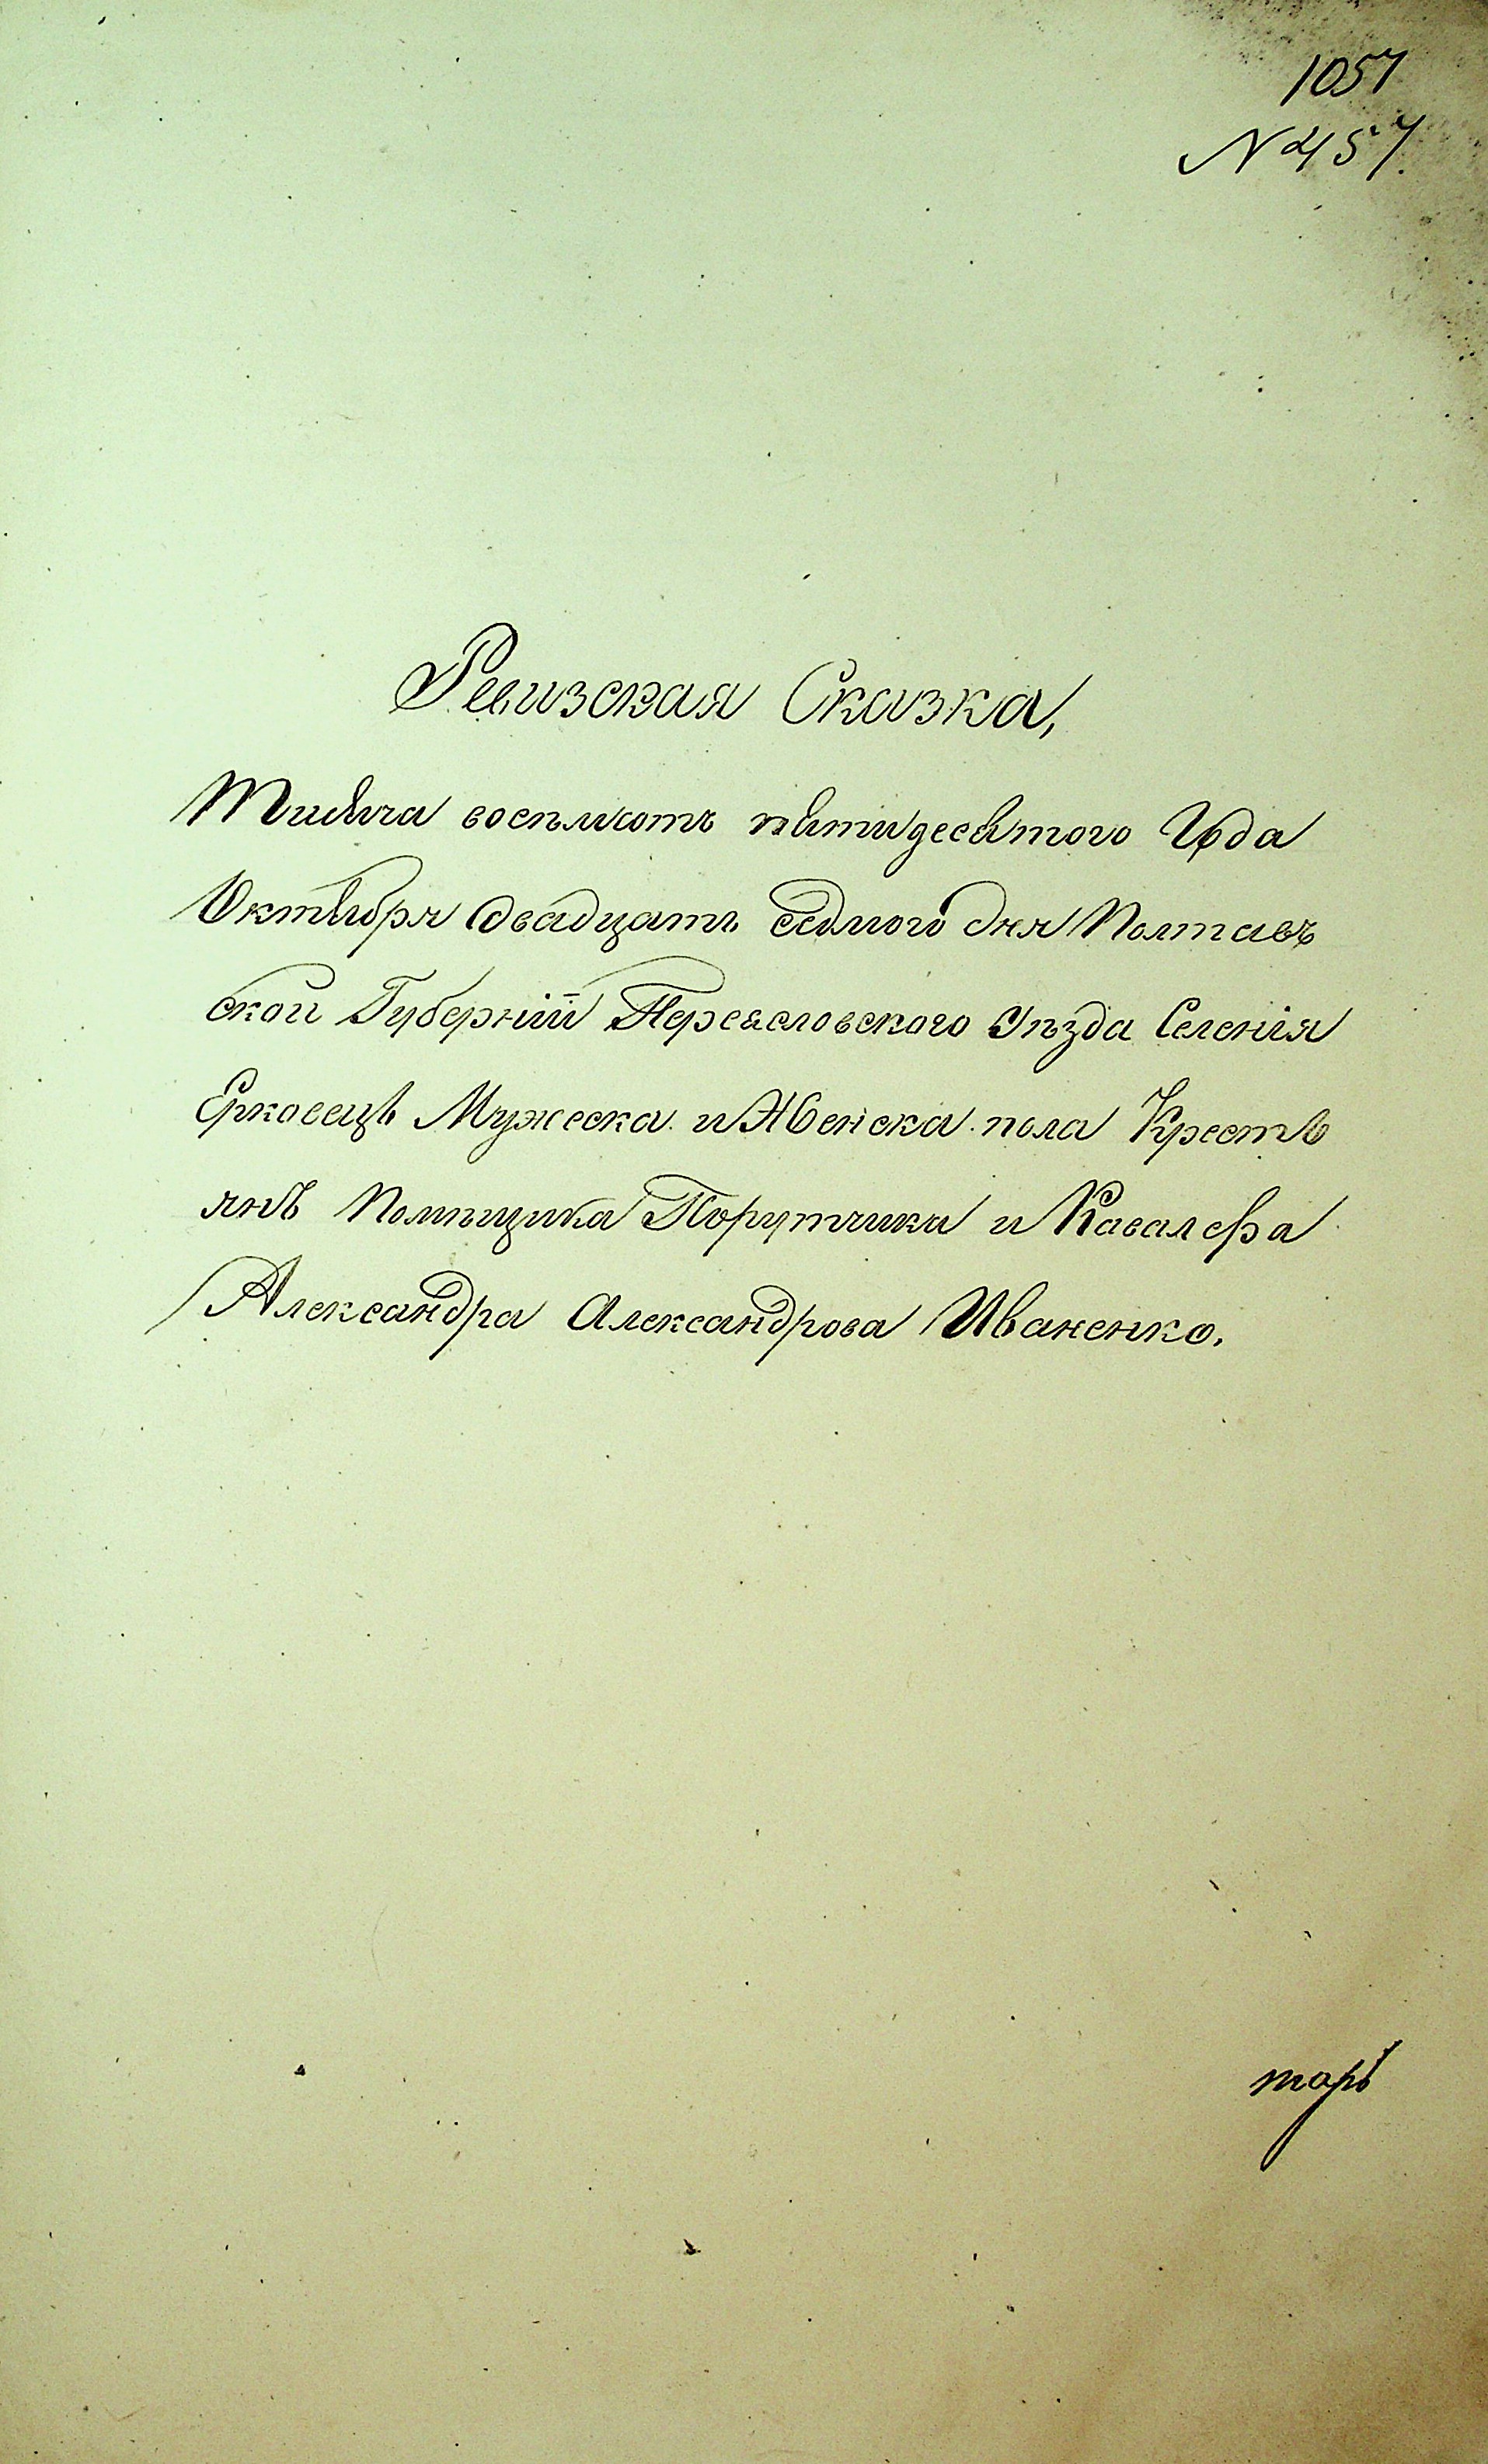 1057
N 457.
Ревизская Сказка,
Тисяча восѣмсотъ пятидесятого Года
Октября двадцать седмого дня Полтавъ
ской Губерніи Переясловского Уѣзда Селенія
Ерковецъ Мужеска и Женска пола Крестъ
янъ Помѣщика Порутчика и Кавалера
Александра Александрова Иваненко.
тарь